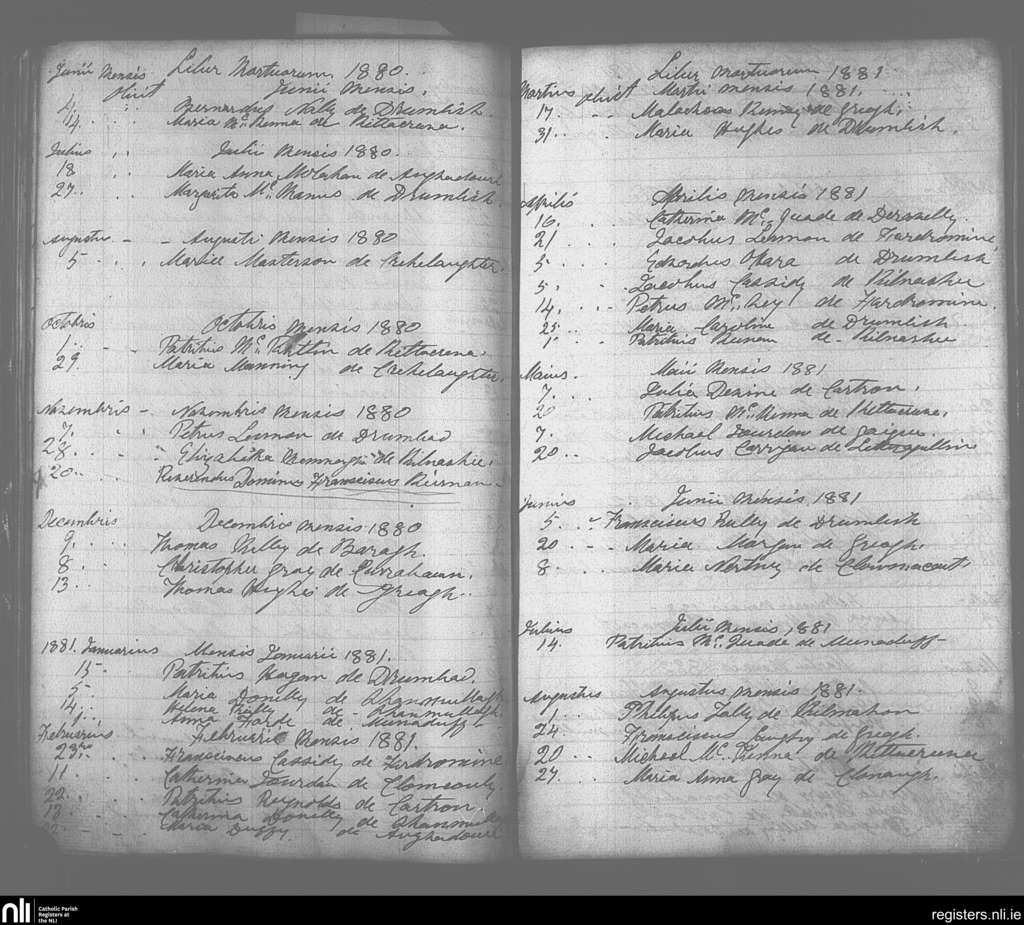 Junii Mensis Liber Mortuorum 1880.
Obiit Junii Mensis.
4. Bernardus Kelly de Drumlish.
14. Maria Mc.Kenna de Kiltacrena.
Julius Julii Mensis 1880.
18 Maria Anna McCahan de Aughadowrl
27. Margarita Mc.Manus de Drumlish.
Augustus Augusti Mensis 1880
5 Maria Masterson de Crehelaughter.
Octobris Octobris Mensis 1880
1. Patritius Mc. de Kiltacrena.
29. Maria Manning de Crehelaughter.
Novembris Novembris Mensis 1880
7. Petrus Lennon de Drumhad
28. Elizabetha de Kilnashee.
20. Reverendus Dominus Franciscus Kiernan
Decembris Decembris Mensis 1880
9. Thomas Killy de Baragh.
8. Christopher Gray de Currahaun.
13. Thomas Hughes de Greagh.
1881. Januarius Mensis Januarii 1881.
15 Patritius Hagan de Drumhad.
5 Maria Donelly de Shanmullagh
14. Helena Reilly de Shanmullagh.
1. Anna Forde de Munaduff.
Februarius Februarii Mensis 1881.
23rd Franciscus Cassidy de Fardromine
11. Catherina Jourdan de
22. Patritius Reynolds de Cartron.
13. Catherina Donelly de Shanmull
Maria Duffy. de Aughadowrl
Liber Mortuorum 1881
Martius obiit Martii Mensis 1881.
17. Malacheas de Greagh.
31. Maria Hughes de Drumlish.
Aprilis Aprilis Mensis 1881
16. Catherina Mc.Quade de Derawelly.
21. Jacobus Lennon de Fardromine.
5. Edwardus Ohara de Drumlish
5. Jacobus Cassidy de Kilnashee
14. Petrus Mc.Key de Fardromine.
25. Maria Caroline de Drumlish
1. Patritius Keenan de Kilnashee
Maius. Maii Mensis 1881
7. Julia Devine de Cartron.
20 Patritius Mc.Kenna de Kiltacrena.
7. Michael Jourdan de Gaigue.
20. Jacobus Corrigan de Lettergullin
Junius Junii Mensis 1881
5. Franciscus Rully de Drumlish
20 Maria Morgan de Greagh.
8. Maria Nertney de Clowmacart
Julius Julii Mensis 1881
14. Patritius Mc.Quade de Munaduff
Augustus Augustus Mensis 1881.
1. Philipus Lally de Kilmahon
24 Franciscus de Greagh.
20 Michael Mc.Kenna de Kiltacrena
27. Maria Anna Gray de Clonaugh.
nli Catholic Parish
Registers at
the NLI
registers.nli.ie